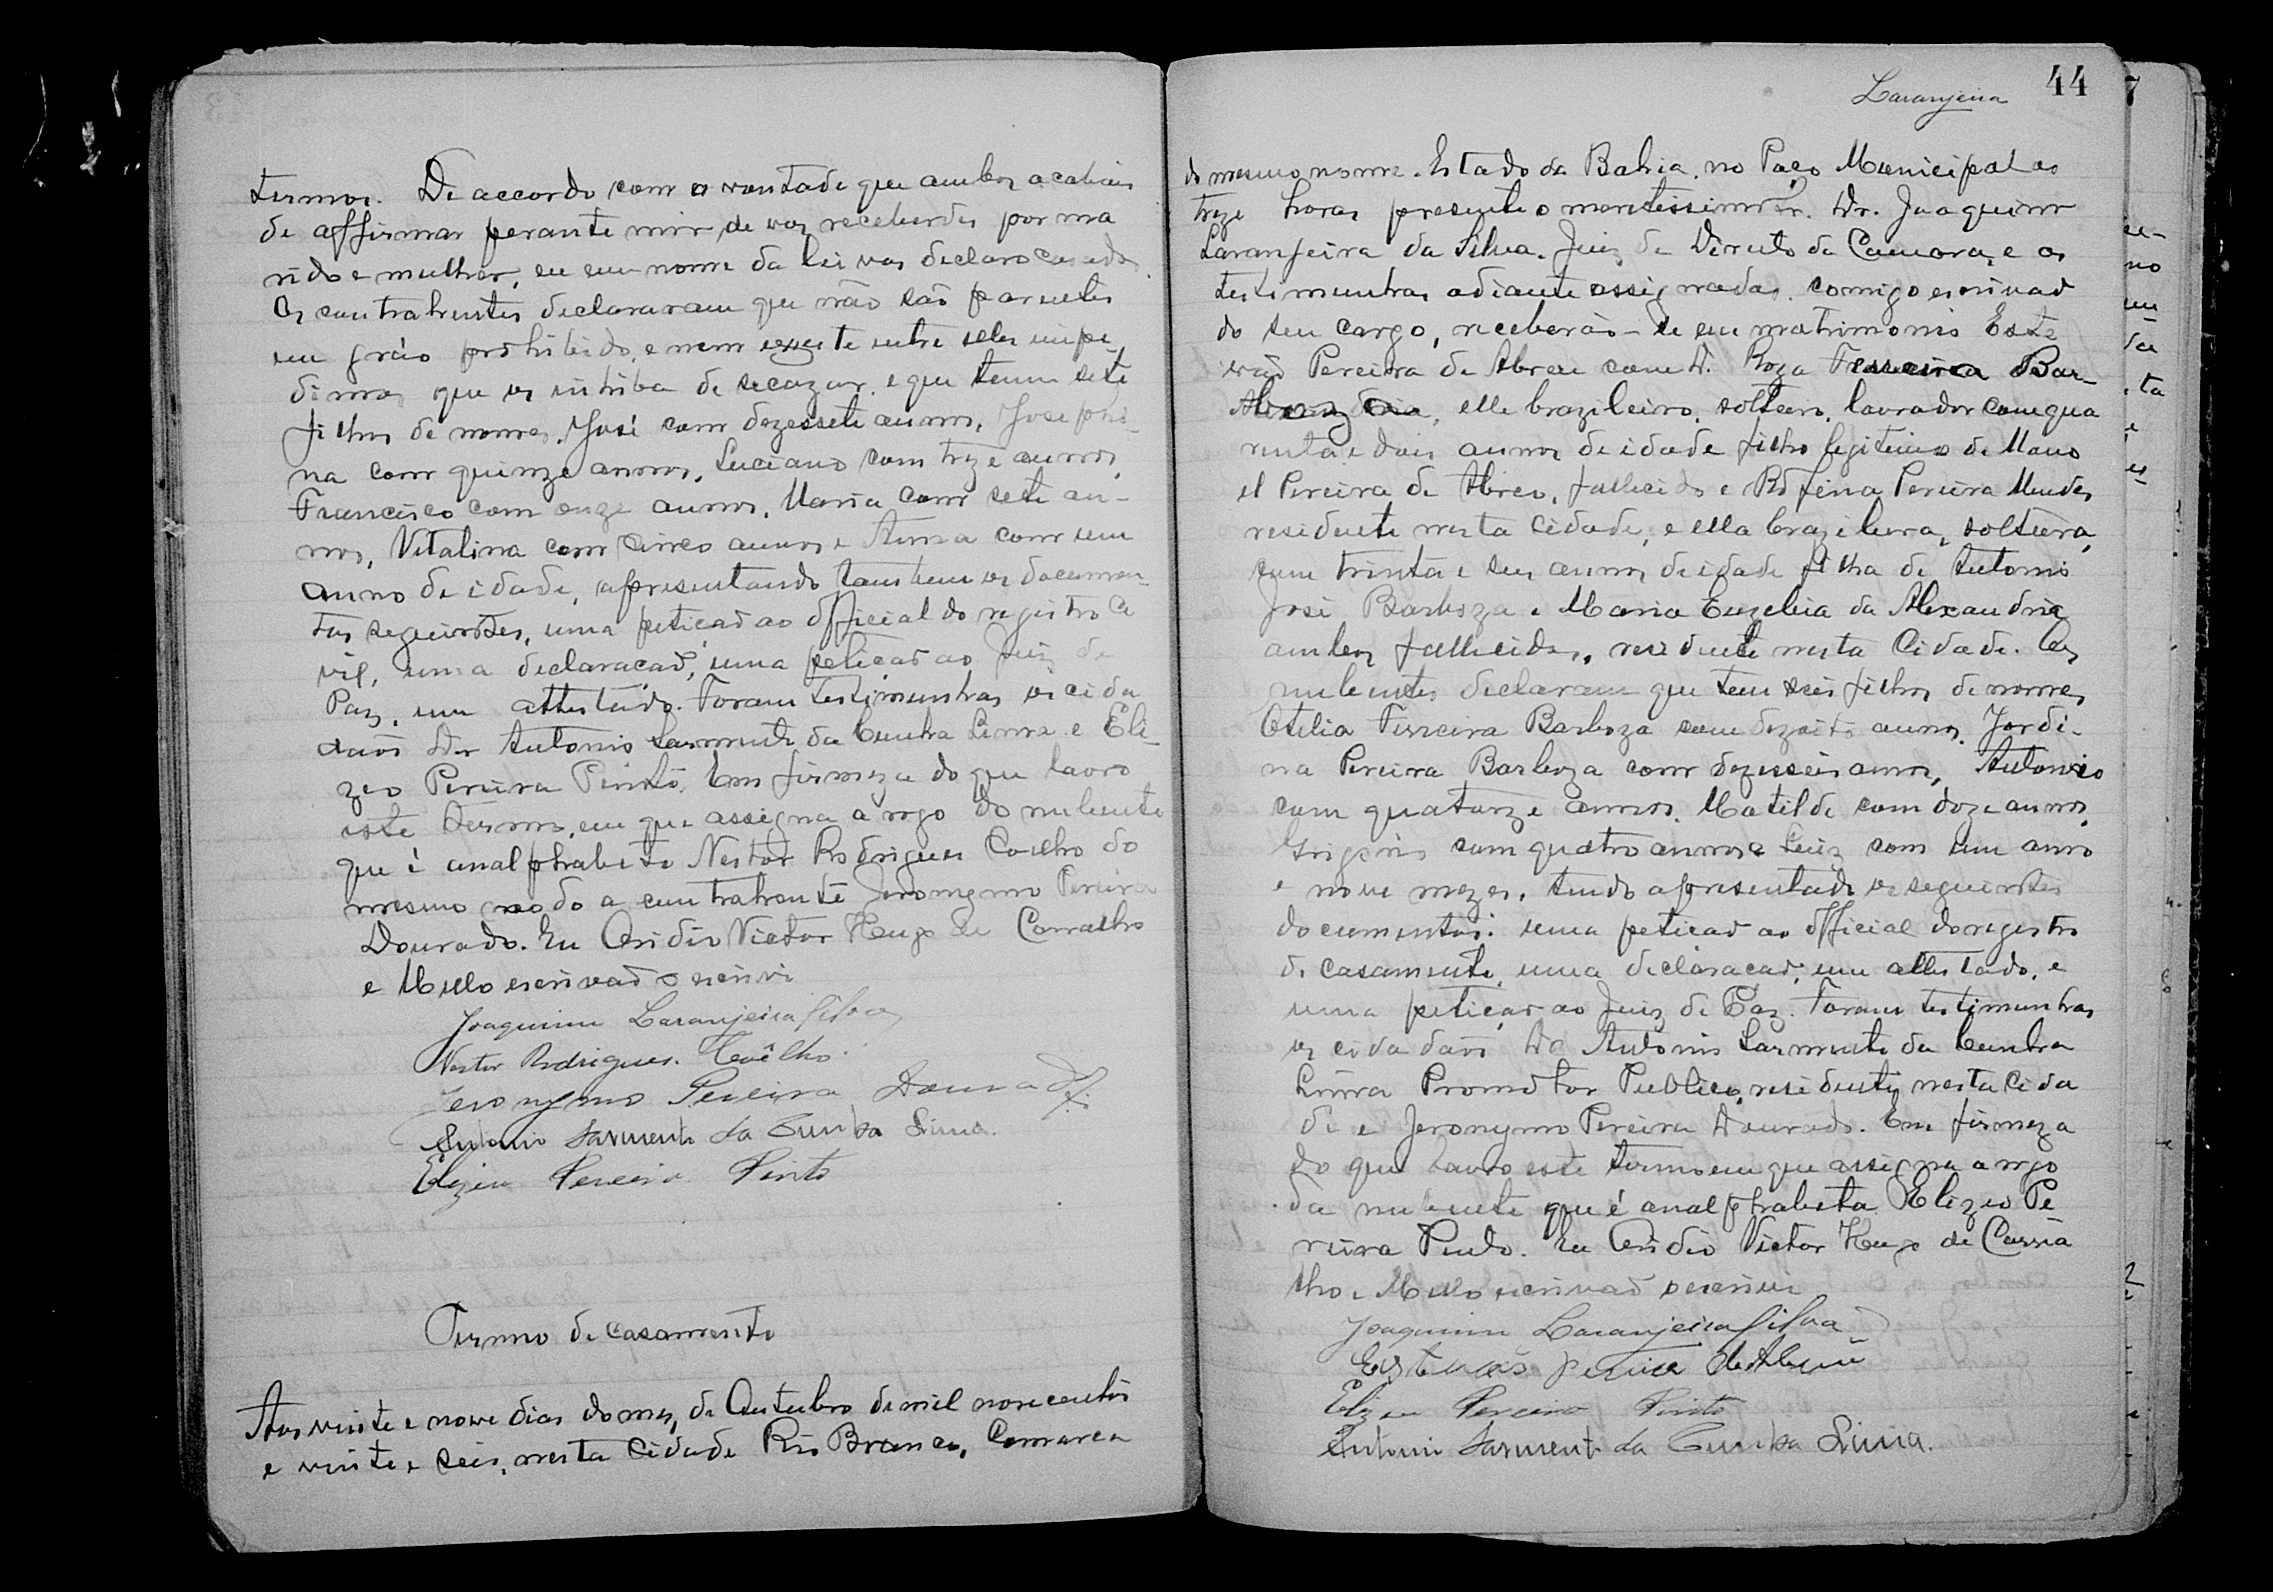 termos. De accordo com a vontade que ambos acabais
de affirmar perante mim, de vos receberdes por ma
rido e mulher, eu em nome da lei vos declaro casados.
Os contrahentes declararam que não são parentes
em gráo prohibido, e nem existe entre elles impe
dimos que os inhiba de se cazar, e que teem sete
filhos de nomes, José com dezessete annos, Josephi-
na com quinze annos, Luciano com treze annos,
Francisco com onze annos, Maria com sete an-
nos, Vitalina com cinco annos e Anna com um
anno de idade, apresentando tambem os documen-
tos seguintes, uma petição ao official do registro ci
vil, uma declaração, uma petição ao Juiz de
Paz, um attestado. Foram testimunhas os cida
dãos Dr Antonio Sarmento da Cunha Lima e Eli-
zeo Pereira Pinto. Em firmeza do que lavro
este termo, em que assigna a rogo do nubente
que é analphabeto Nestor Rodrigues Coelho do
mesmo modo a contrahente Jeronymo Pereira
Dourado. Eu Ovidio Victor Hugo de Carvalho
e Mello escrivão o escrivi
Joaquim Laranjeira Silva
Nestor Rodrigues Coêlho.
Jeronymo Pereira Dourado
Antonio Sarmento da Cunha Lima.
Elizeu Pereira Pinto
Termo de casamento
Aos vinte e nove dias do mez de Outubro de mil novecentos
e vinte e seis, nesta Cidade Rio Branco, Comarca
Laranjeira
44
do mesmo nome. Estado da Bahia, no Paço Municipal as
treze horas presente o Dr. Joaquim
Laranjeira da Silva. Juiz de Direito da Camara, e as
testimunhas adiante assignadas, comigo escrivão
do seu cargo, receberão-se em matrimonio Este
vão Pereira de Abreu com D. Roza Ferreira Bar-
elle brazileiro, solteiro, lavrador com qua
renta e dois annos de idade filho legitimo de Mano
el Pereira de Abreu, fallecido e Rofina Pereira Mendes
residente nesta cidade, e ella brazileira, solteira,
com trinta e seis annos de idade filha de Antonio
José Barboza e Maria Euzebia da Alexandria
ambos fallecidos, residente nesta Cidade. Os
nubentes declaram que tem seis filhos de nomes
Otilia Ferreira Barboza com dezoito annos, Jordi-
na Pereira Barboza com dezesseis annos, Antonio
com quatorze annos, Matilde com doze annos,
Grigorio com quatro annos e Luiz com um anno
e nove mezes, tendo apresentado os seguintes
documentos: uma petição ao official do registro
de casamento, uma declaração, um attestado, e
uma petição ao Juiz de Paz. Foram testimunhas
os cidadãos Dr Antonio Sarmento da Cunha
Lima Promotor Publico, residente nesta cida
de e Jeronymo Pereira Dourado. Em firmeza
do que lavro este termo em que assigna a rogo
da nubente que é analphabeta Elizeo Pe
reira Pinto. Eu Ovidio Victor Hugo de Carva
lho e Mello escrivão o escrivi
Joaquim Laranjeira Silva
Estevão Pereira de Abreu
Elizeu Pereira Pinto
Antonio Sarmento da Cunha Lima.